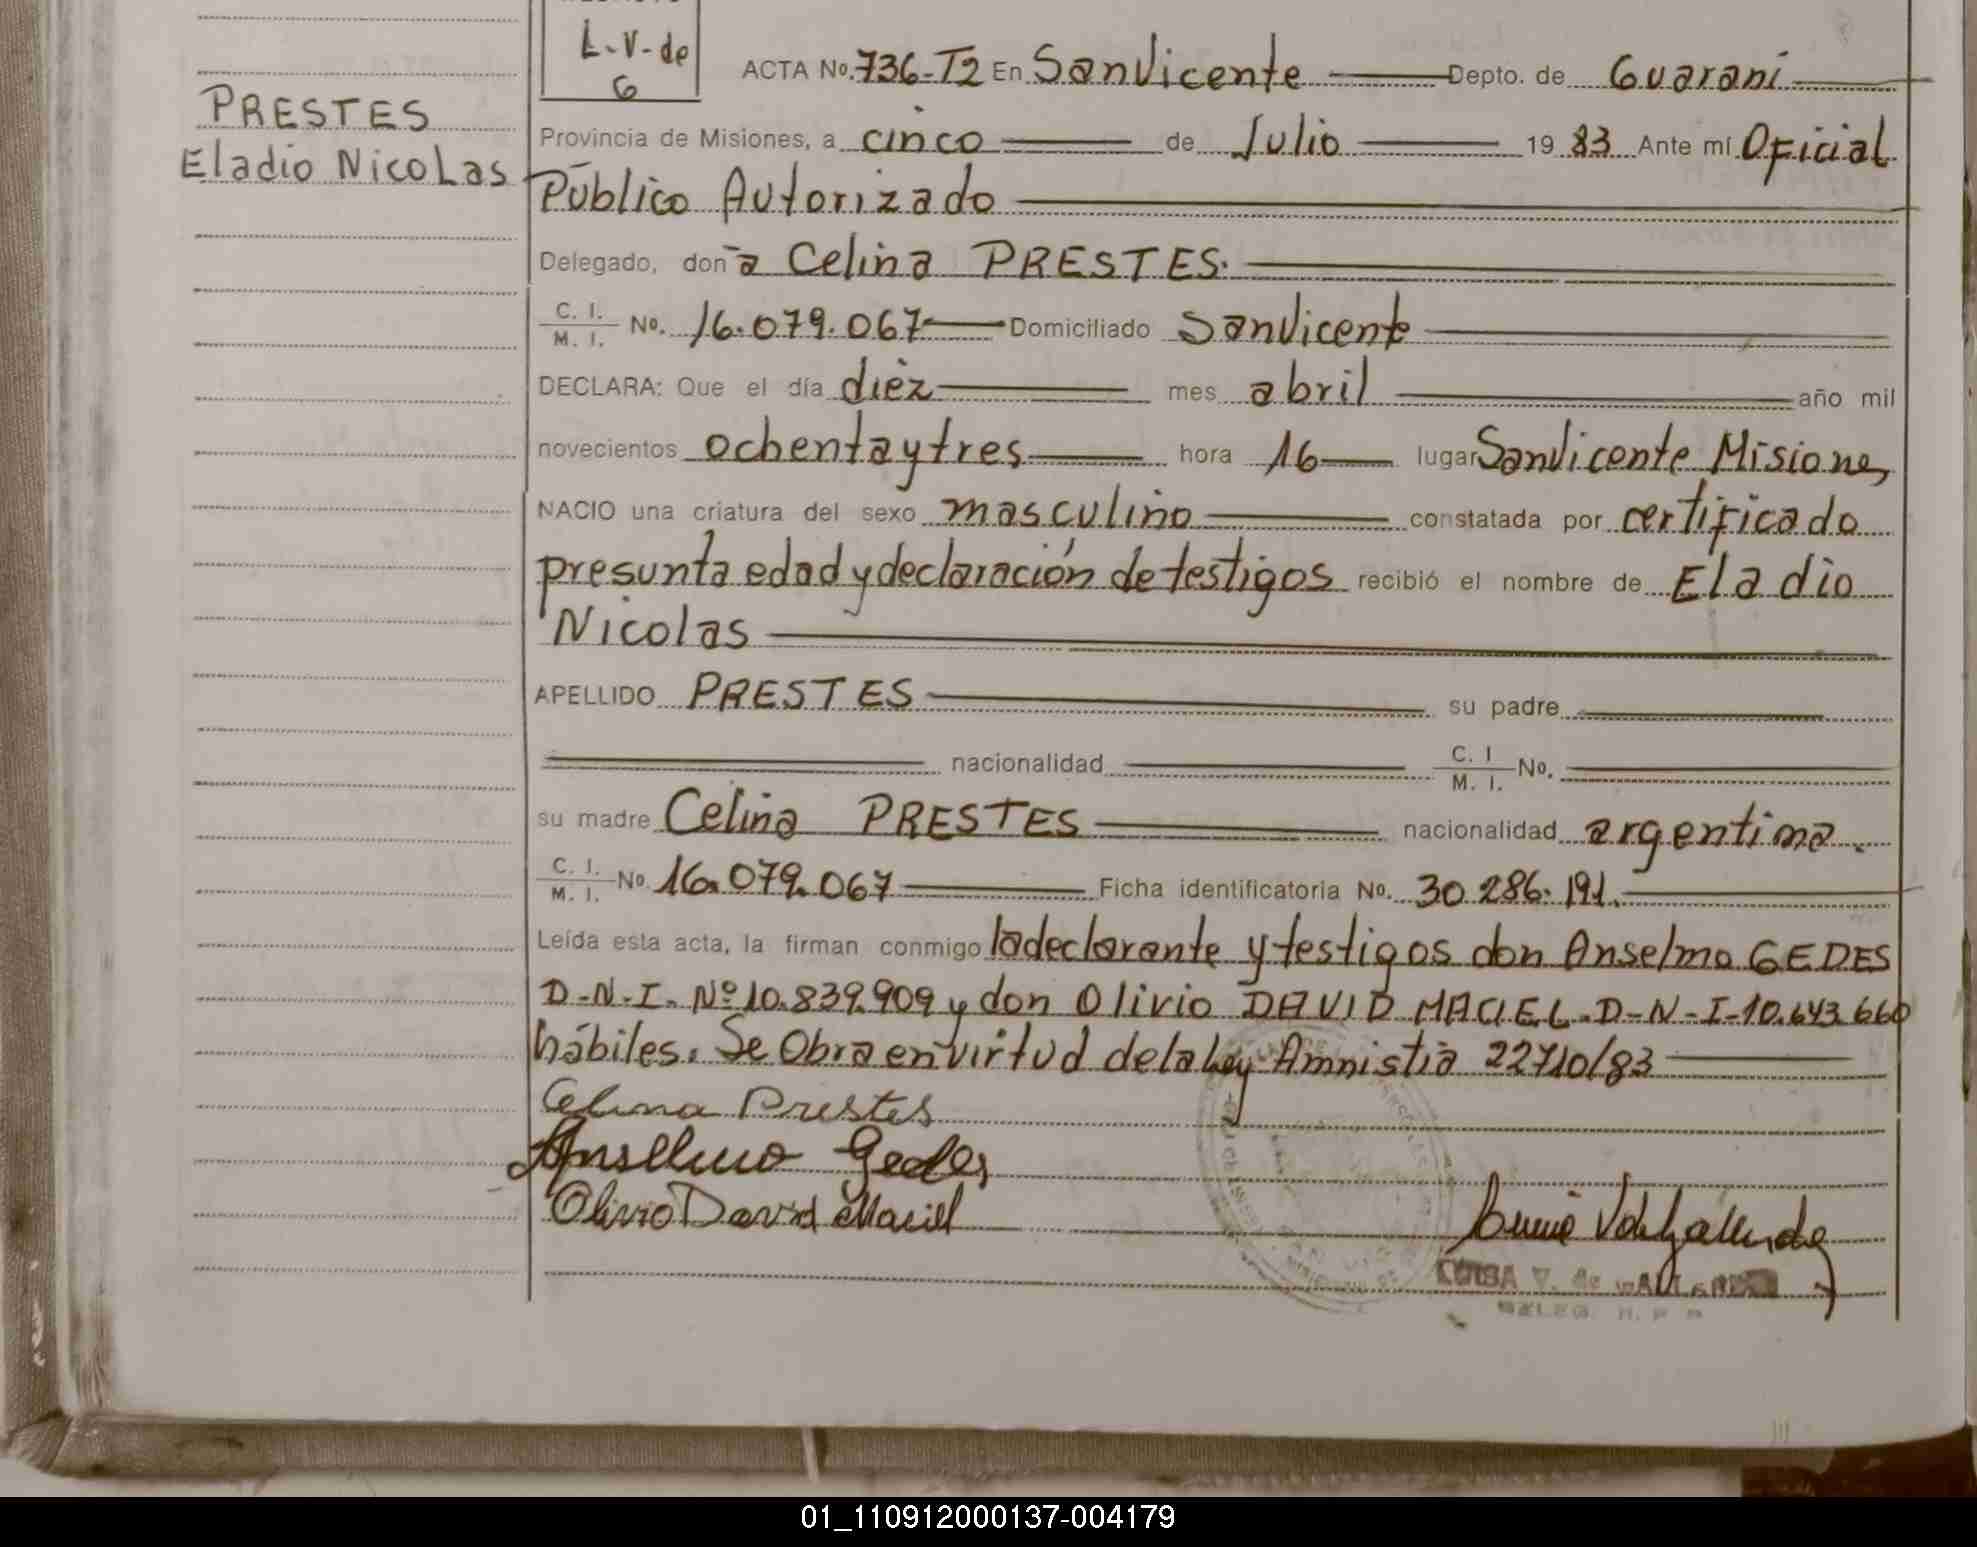 L-V-de
G
ACTA No. 736-T2 En SanVicente Depto. de Guaraní
PRESTES
Eladio NicoLas
Provincia de Misiones, a cinco de Julio 1983 Ante mí Oficial
Público Autorizado
Delegado, doña Celina PRESTES.
C. I.
M. I. No. 16.079.067 Domiciliado SanVicente
DECLARA: Que el día dièz mes abril año mil
novecientos ochentaytres hora 16 lugar SanVicente Misiones
NACIO una criatura del sexo masculino constatada por certificado
presunta edad y declaración de testigos recibió el nombre de Eladio
Nicolas
APELLIDO PRESTES su padre
nacionalidad C. I
M. I. No.
su madre Celina PRESTES nacionalidad argentina.
C. I.
M. I. No. 16.079.067 Ficha identificatoria No. 30.286.191.
Leída esta acta, la firman conmigo la declarante y testigos don Anselmo GEDES
D-N-I- Nº 10.839.909 y don Olivio DAVID MACIEL-D-N-I-10.643.660
hábiles. Se Obra en virtud de la Ley Amnistia 22710/83
Celina Prestes
Ansellmo Gedes
Olivio David Maciel
01_110912000137-004179